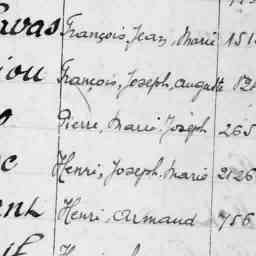 vas François, Jean, Marie 151
iou François, Joseph, auguste 121
Pierre, Marie. Joseph 265
Henri, Joseph. Marie 2126
Henri, Armand 756